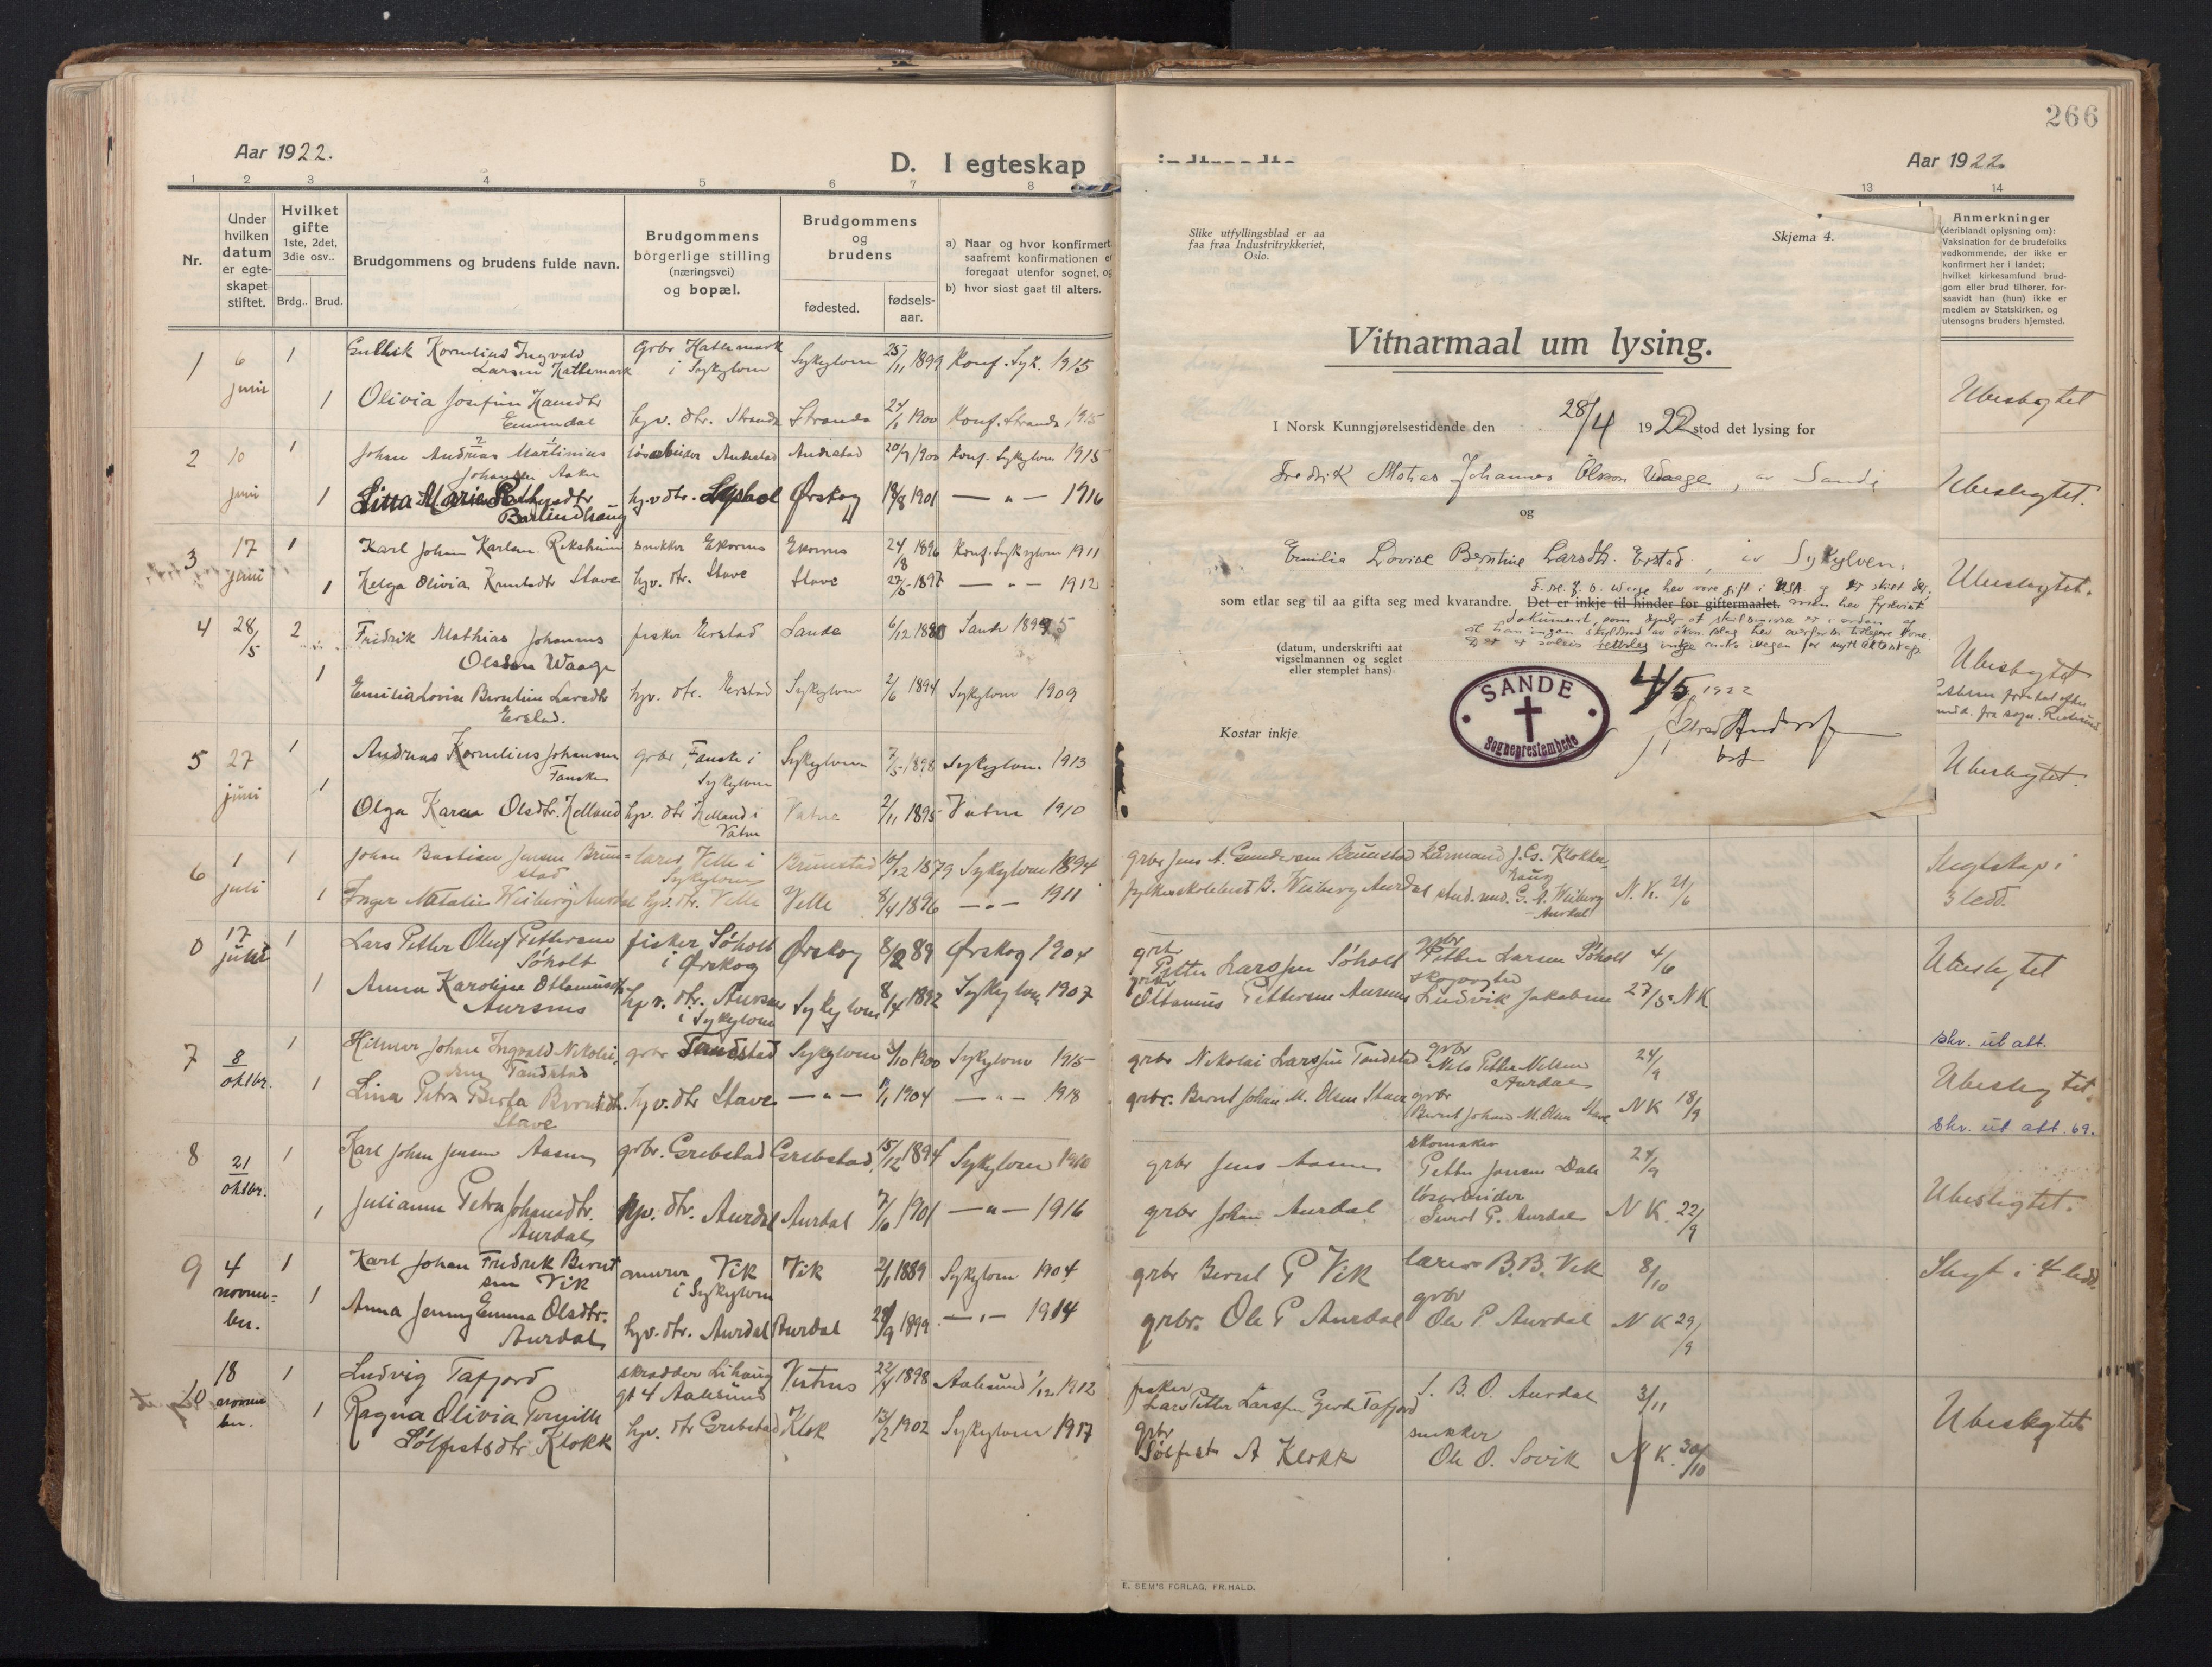 266
Aar 1922.
D. I egteskap indtraadte
Aar 1922.
1 2 3 4 5 6 7 8
13 14
Nr.
Under hvilken datum er egte-skapet stiftet.
Hvilket gifte
1ste, 2det, 3die osv..
Brdg.. Brud.
Brudgommens og brudens fulde navn.
Brudgommens borgerlige stilling (næringsvei) og bopæl.
Brudgommens og brudens
fødested.
fødsels-aar.
a) Naar og hvor konfirmert
saafremt konfirmationen er
foregaat utenfor sognet, og
b) hvor sist gaat til alters.
Anmerkninger
(deriblandt oplysning om):
Vaksination for de brudefolks
vedkommende, der ikke er
konfirmert her i landet;
hvilket kirkesamfund brud-
gom eller brud tilhører, for-
saavidt han (hun) ikke er
medlem av Statskirken, og
utensogns bruders hjemsted.
1 6 juni 1 Kornelius Ingvald
Larsen Hattemark
Grbr Hattemark i Sykylven Sykylven 25/11 1899 Konf. Syk. 1915
1 Olivia Josefine Hansdtr
Emmdal
hjv. dtr. Stranda Stranda 24/1 1900 Konf. Stranda 1915
Ubeslegtet
2 10 juni 1 Johan Andreas Martinius
Johansen Aasen
løsarbeider Andestad Andestad 20/7 1900 Konf. Sykylven 1915
1 Litta Marie
Barlindhaug
hjv. dtr. Ørskog 18/8 1901 — „ — 1916
Ubeslegtet.
3 17 juni 1 Karl Johan Karlsen Rekshuim snekker Ekornes Ekornes 24/8 1896 Konf. Sykylven 1911
1 Helga Olivia Knutsdtr Stave hjv. dtr. Stave Stave 27/5 1897 — „ — 1912
Ubeslegtet.
4 28/5 2 Fredrik Mathias Johannes
Olsson Waage
fisker Erstad Sande 6/12 1880 Sande 1895
1 Emilia Lovise Berntine Larsdtr
Erstad.
hjv. dtr. Erstad Sykylven 2/6 1894 Sykylven 1909
Ubeslegtet
5 27 juni 1 Andreas Kornelius Johansen
Fauske
grbr Fauske i Sykylven Sykylven 7/5 1898 Sykylven 1913
1 Olga Karen Olsdtr. Helland hjv. dtr Helland i Vatne Vatne 2/11 1895 Vatne 1910
Ubeslegtet.
6 1 juli 1 Johan Bastian Jensen Brun=
stad
lærer, Velle i Sykylven Brunstad 10/12 1879 Sykylven 1894
grbr Jens A. Gundersen Brunstad Lensmand J. Cs. Klokke-
haug
1 Inger Natalie Weiberg Aurdal hjv. dtr. Velle Velle 8/4 1896 — „ — 1911
fylkesskolebest B. Weiberg Aurdal stud. med. G. A. Weiberg
Aurdal
N. K. 21/6
Slegtskap i
3 ledd.
0 17 juni 1 Lars Petter Oluf Pettersen
Søholt
fisker Søholt i Ørskog Ørskog 8/2 89 Ørskog 1904
grbr
Petter Larssen Søholt
grbr
Petter Larsen Søholt 4/6
1 Anna Karoline Ottamusdtr
Aursnes
hjv. dtr. Aursnes i Sykylven Sykylven 8/4 1892 Sykylven 1907
grbr
Ottamus Pettersen Aursnes
skogvogter
Ludvik Jakobsen 27/5 NK
Ubeslegtet
7 8/oktbr. 1 Hilmar Johan Ingvald Nikolai
sen Tandstad
grbr Tandstad Sykylven /10 1900 Sykylven 1915
grbr Nikolai Larssen Tandstad grbr
Nils Petter Nilsen
Aurdal
24/9
skr. ut att.
1 Lina Petra Berta Berntsdtr.
Stave
hjv. dtr Stave — „ — /1 1904 — „ — 1918
grbr. Bernt Johan M. Olsen Stave grbr
Bernt Johan M. Olsen Stave NK 18/9
Ubeslegtet.
skr. ut att. 69.
8 21/oktbr. 1 Karl Johan Jensen Aasen grbr. Grebstad Grebstad 15/12 1894 Sykylven 1910
grbr Jens Aasen
skomaker
Petter Jensen Dale 24/9
1 Julianne Petra Johansdtr.
Aurdal
hjv. dtr. Aurdal Aurdal 7/6 1901 — „ — 1916
grbr Johan Aurdal
løsarbeider
Sivert P. Aurdal N K. 22/9
Ubeslegtet.
9 4 novem=
ber. 1 Karl Johan Fredrik Bernt
sen Vik
murer Vik i Sykylven Vik 2/1 1889 Sykylven 1904
grbr Bernt P Vik lærer B.B. Vik 8/10
1 Anna Jenny Emma Olsdtr.
Aurdal
hjv. dtr. Aurdal Aurdal 29/9 1899 — „ — 1914
grbr. Ole P Aurdal grbr
Ole P. Aurdal N K 29/9
Slegt i 4 ledd.
10 18 novem
ber. 1 Ludvig Tafjord skrædder Lihaug
gt 4 Aalesund Vestnes 22/4 1898 Aalesund 1/12 1912
fisker
Lars Petter Larssen Gjerde Tafjord S. B. O. Aurdal 3/11
1 Ragna Olivia Pernille
Sølfestsdtr Klokk
hjv. dtr Grebstad Klok 13/2 1902 Sykylven 1917
grbr
Sølfest A Klokk
snekker
Ole O. Sovik N K. 30/10
Ubeslegtet
E. SEM'S FORLAG, FR.HALD.
Slike utfyllingsblad er aa
faa fraa Industritrykkeriet,
Oslo.
Skjema 4.
Vitnarmaal um lysing.
I Norsk Kunngjørelsestidende den 28/4 1922 stod det lysing for
Fredrik Matias Johannes Olsson Waage, av Sande
og
Emilia Lovise Berntine Larsdtr. Erstad, av Sykylven.
F. M. J. O. Waage hev vore gift i USA og er skilt der,
som etlar seg til aa gifta seg med kvarandre. Det er inkje til hinder for giftermaalet. men hev fyrevist
dokument, som syner at skilsmissa er i orden og
at han ingen skyldnad av økon. slag hev overfor sin tidlegare kone.
Det er soleis rettsleg inkje noko i vegen for nytt ekteskap
(datum, underskrifti aat
vigselmannen og seglet
eller stemplet hans)
4/5 1922
SANDE
Sogneprestembete
Kostar inkje